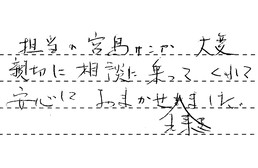 担当の宮島サンが 大変
親切に相談に乗ってくれて
安心して おまかせ出来ました。